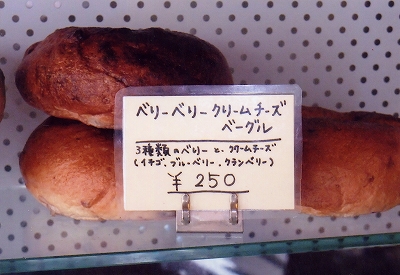 ベリーベリークリームチーズ
ベーグル
3種類のベリーと、クリームチーズ
(イチゴ、ブルーベリー、クランベリー)
¥250